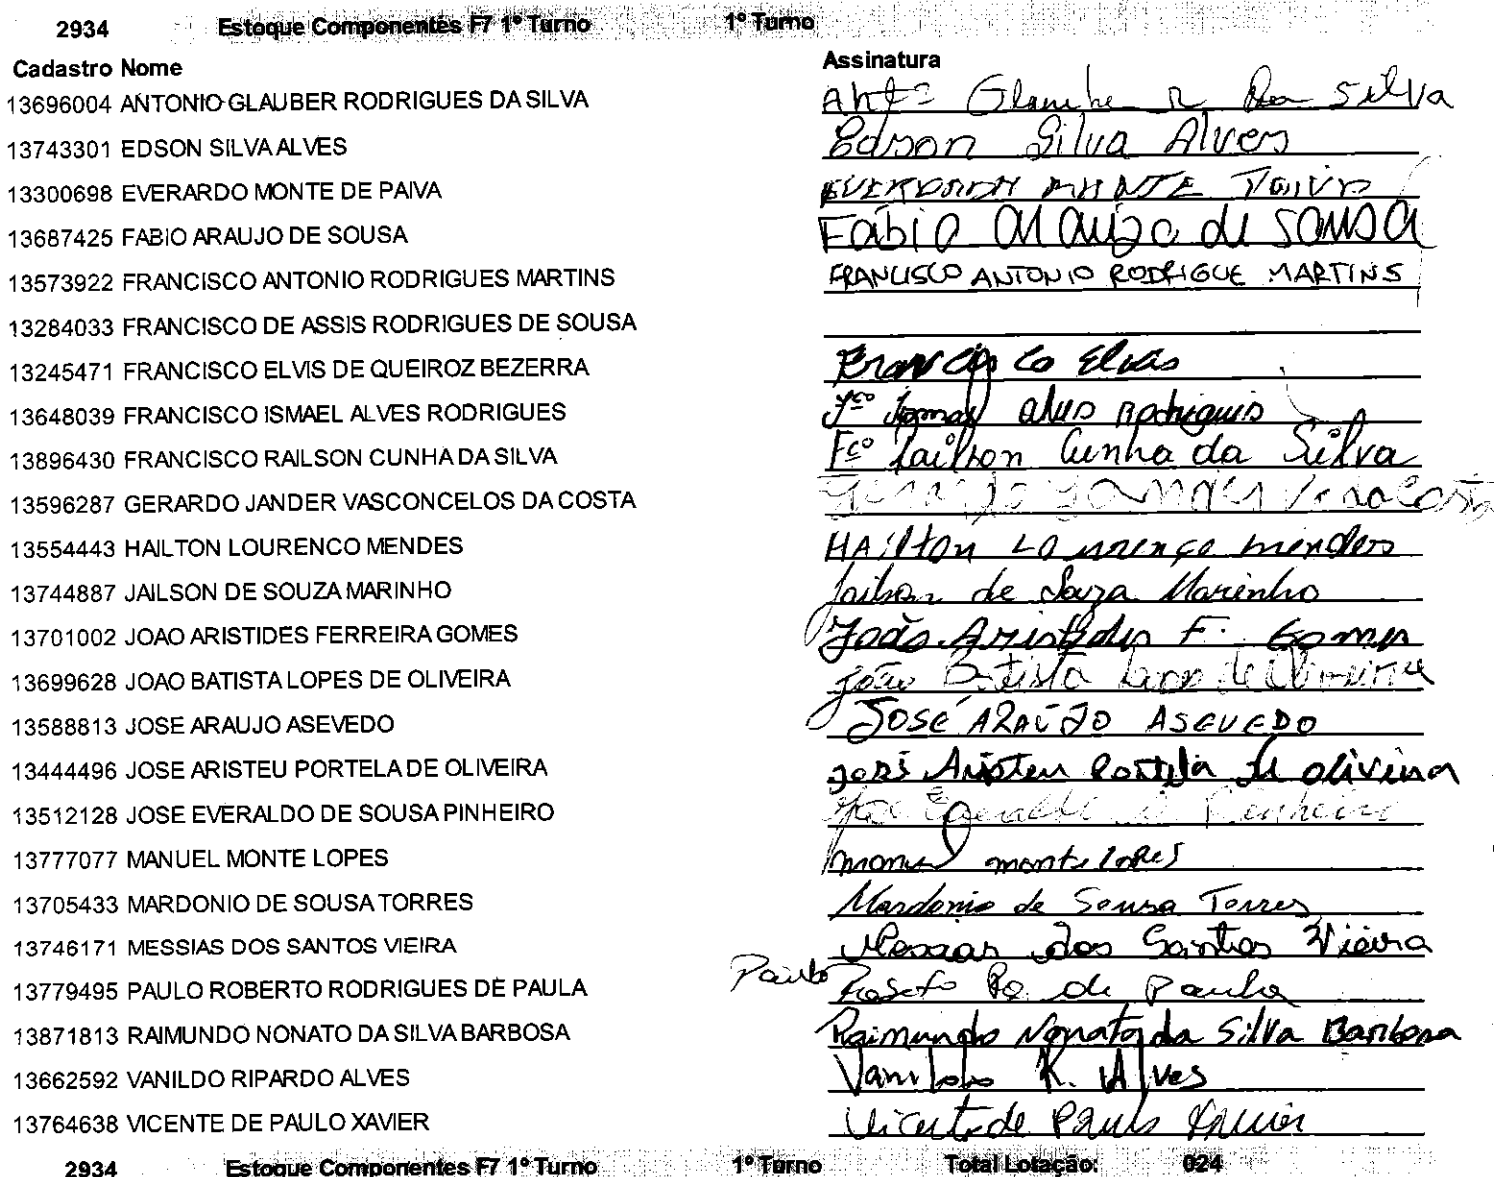 2934 Estoque Componentes F7 1º Turno 1º Turno
Cadastro Nome Assinatura
13696004 ANTONIO GLAUBER RODRIGUES DA SILVA Silva
13743301 EDSON SILVA ALVES Edson Silva Alves
13300698 EVERARDO MONTE DE PAIVA MONTE PAIVA
13687425 FABIO ARAUJO DE SOUSA Fábio Araujo de SOUSA
13573922 FRANCISCO ANTONIO RODRIGUES MARTINS FRANCISCO ANTONIO RODRIGUE MARTINS
13284033 FRANCISCO DE ASSIS RODRIGUES DE SOUSA
13245471 FRANCISCO ELVIS DE QUEIROZ BEZERRA Francisco Elvis
13648039 FRANCISCO ISMAEL ALVES RODRIGUES Fco Ismael alves Rodrigues
13896430 FRANCISCO RAILSON CUNHA DA SILVA Fco Railson Cunha da Silva
13596287 GERARDO JANDER VASCONCELOS DA COSTA Gerardo Jander V. da Costa
13554443 HAILTON LOURENCO MENDES HAilton Lourenço mendes
13744887 JAILSON DE SOUZA MARINHO Jailson de Souza Marinho
13701002 JOAO ARISTIDES FERREIRA GOMES João Aristides F. Gomes
13699628 JOAO BATISTA LOPES DE OLIVEIRA João Batista Lopes de Oliveira
13588813 JOSE ARAUJO ASEVEDO JOSÉ ARAÚJO ASEVEDO
13444496 JOSE ARISTEU PORTELA DE OLIVEIRA José Aristeu Portela de oliveira
13512128 JOSE EVERALDO DE SOUSA PINHEIRO José Everaldo Pinheiro
13777077 MANUEL MONTE LOPES manuel monte lopes
13705433 MARDONIO DE SOUSA TORRES Mardonio de Sousa Torres
13746171 MESSIAS DOS SANTOS VIEIRA Messias dos Santos Vieira
13779495 PAULO ROBERTO RODRIGUES DE PAULA Paulo Roberto Ro de Paula
13871813 RAIMUNDO NONATO DA SILVA BARBOSA Raimundo Nonato da Silva Barbosa
13662592 VANILDO RIPARDO ALVES Vanildo R. Alves
13764638 VICENTE DE PAULO XAVIER Vicente de Paulo Xavier
2934 Estoque Componentes F7 1º Turno 1º Turno Total Lotação: 024